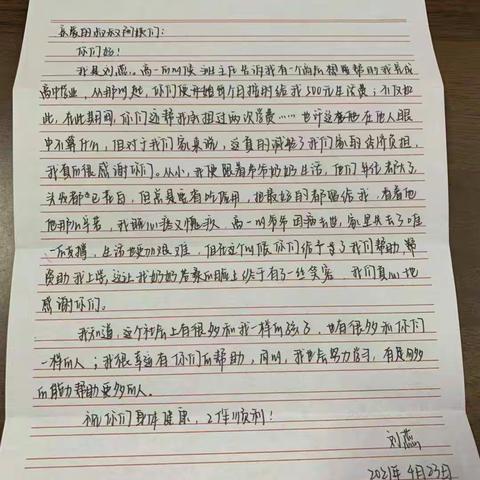 亲爱的叔叔阿姨们：
你们好！
我是刘燕。高一的时候班主任告诉我有一个团队想帮助我完成
高中学业，从那时起，你们便开始每个月按时给我500元生活费；不仅如
此，在此期间，你们还帮我承担过两次学费……也许这在他人眼
中不算什么，但对于我们家来说，这真的减轻了我们家的经济负担，
我真的很感谢你们。从小，我便跟着爷爷奶奶生活，他们年纪都大了
头发都已花白，但总是省吃俭用，把最好的都留给我，看着他
他那么辛苦，我既心疼又愧疚，高一时爷爷因病去世，家里失去了唯
一的支撑，生活也更加艰难，但在这个时候你们给予了我们帮助，帮
资助我上学，这让我奶奶苍老的脸上终于有了一丝笑容，我们真心地
感谢你们。
我知道，这个社会上有很多和我一样的孩子，也有很多和你们
一样的人；我很幸运有你们的帮助，同时，我也会努力学习，有足够多
的能力帮助更多的人。
祝你们身体健康，工作顺利！
刘燕
2021年4月23日